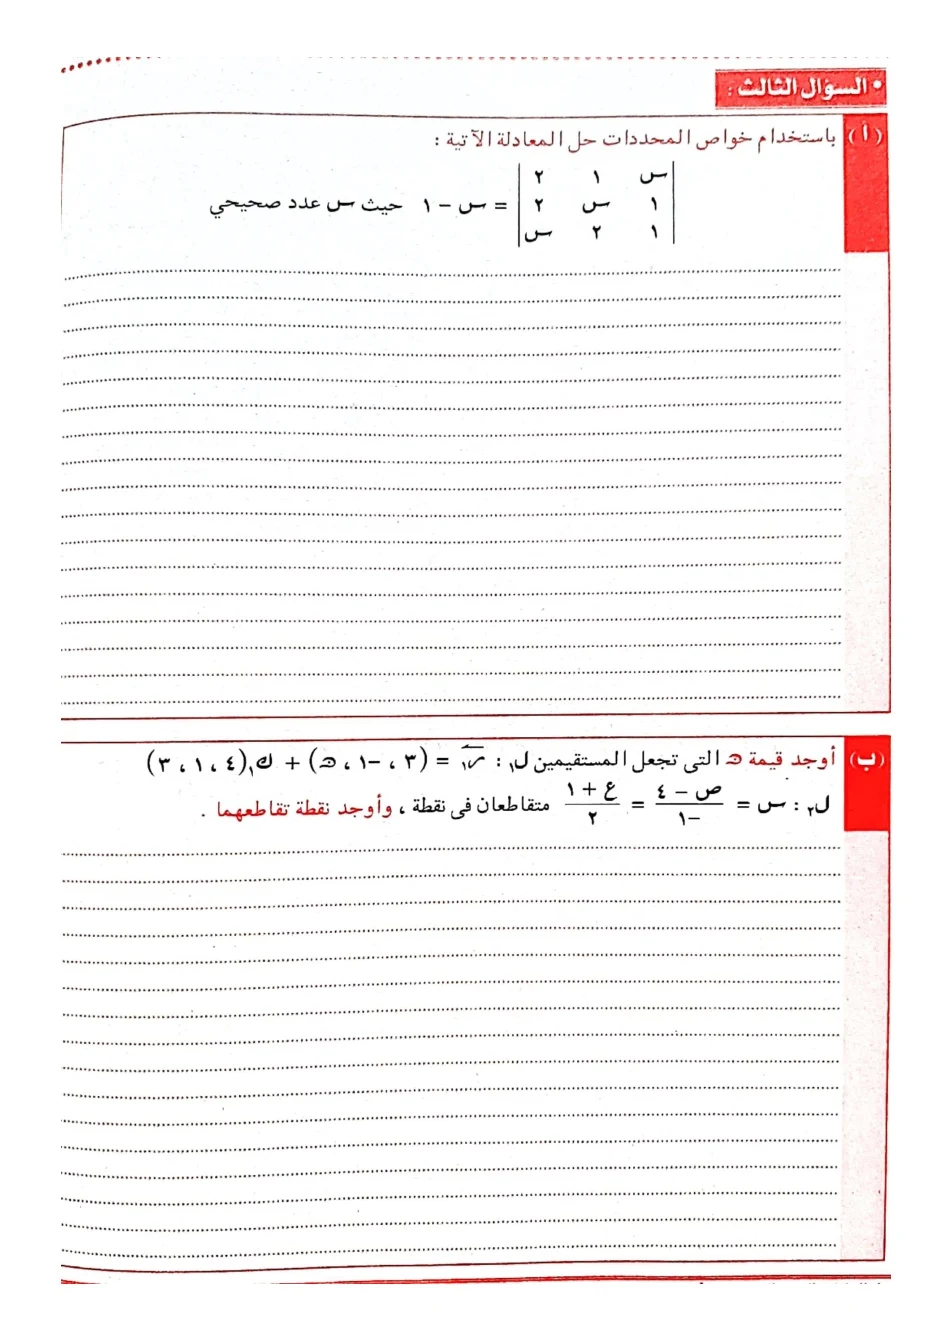 • السؤال الثالث :
(أ) باستخدام خواص المحددات حل المعادلة الآتية :
| س ١ ٢ |
| ١ س ٢ | = س − ١ حيث س عدد صحيحي
| ١ ٢ س |
(ب) أوجد قيمة هـ التى تجعل المستقيمين ل١ : ر١ = (٣ ، −١ ، هـ) + ك١(٤ ، ١ ، ٣)
ل٢ : س = (ص − ٤)/(−١) = (ع + ١)/٢ متقاطعان فى نقطة ، وأوجد نقطة تقاطعهما .